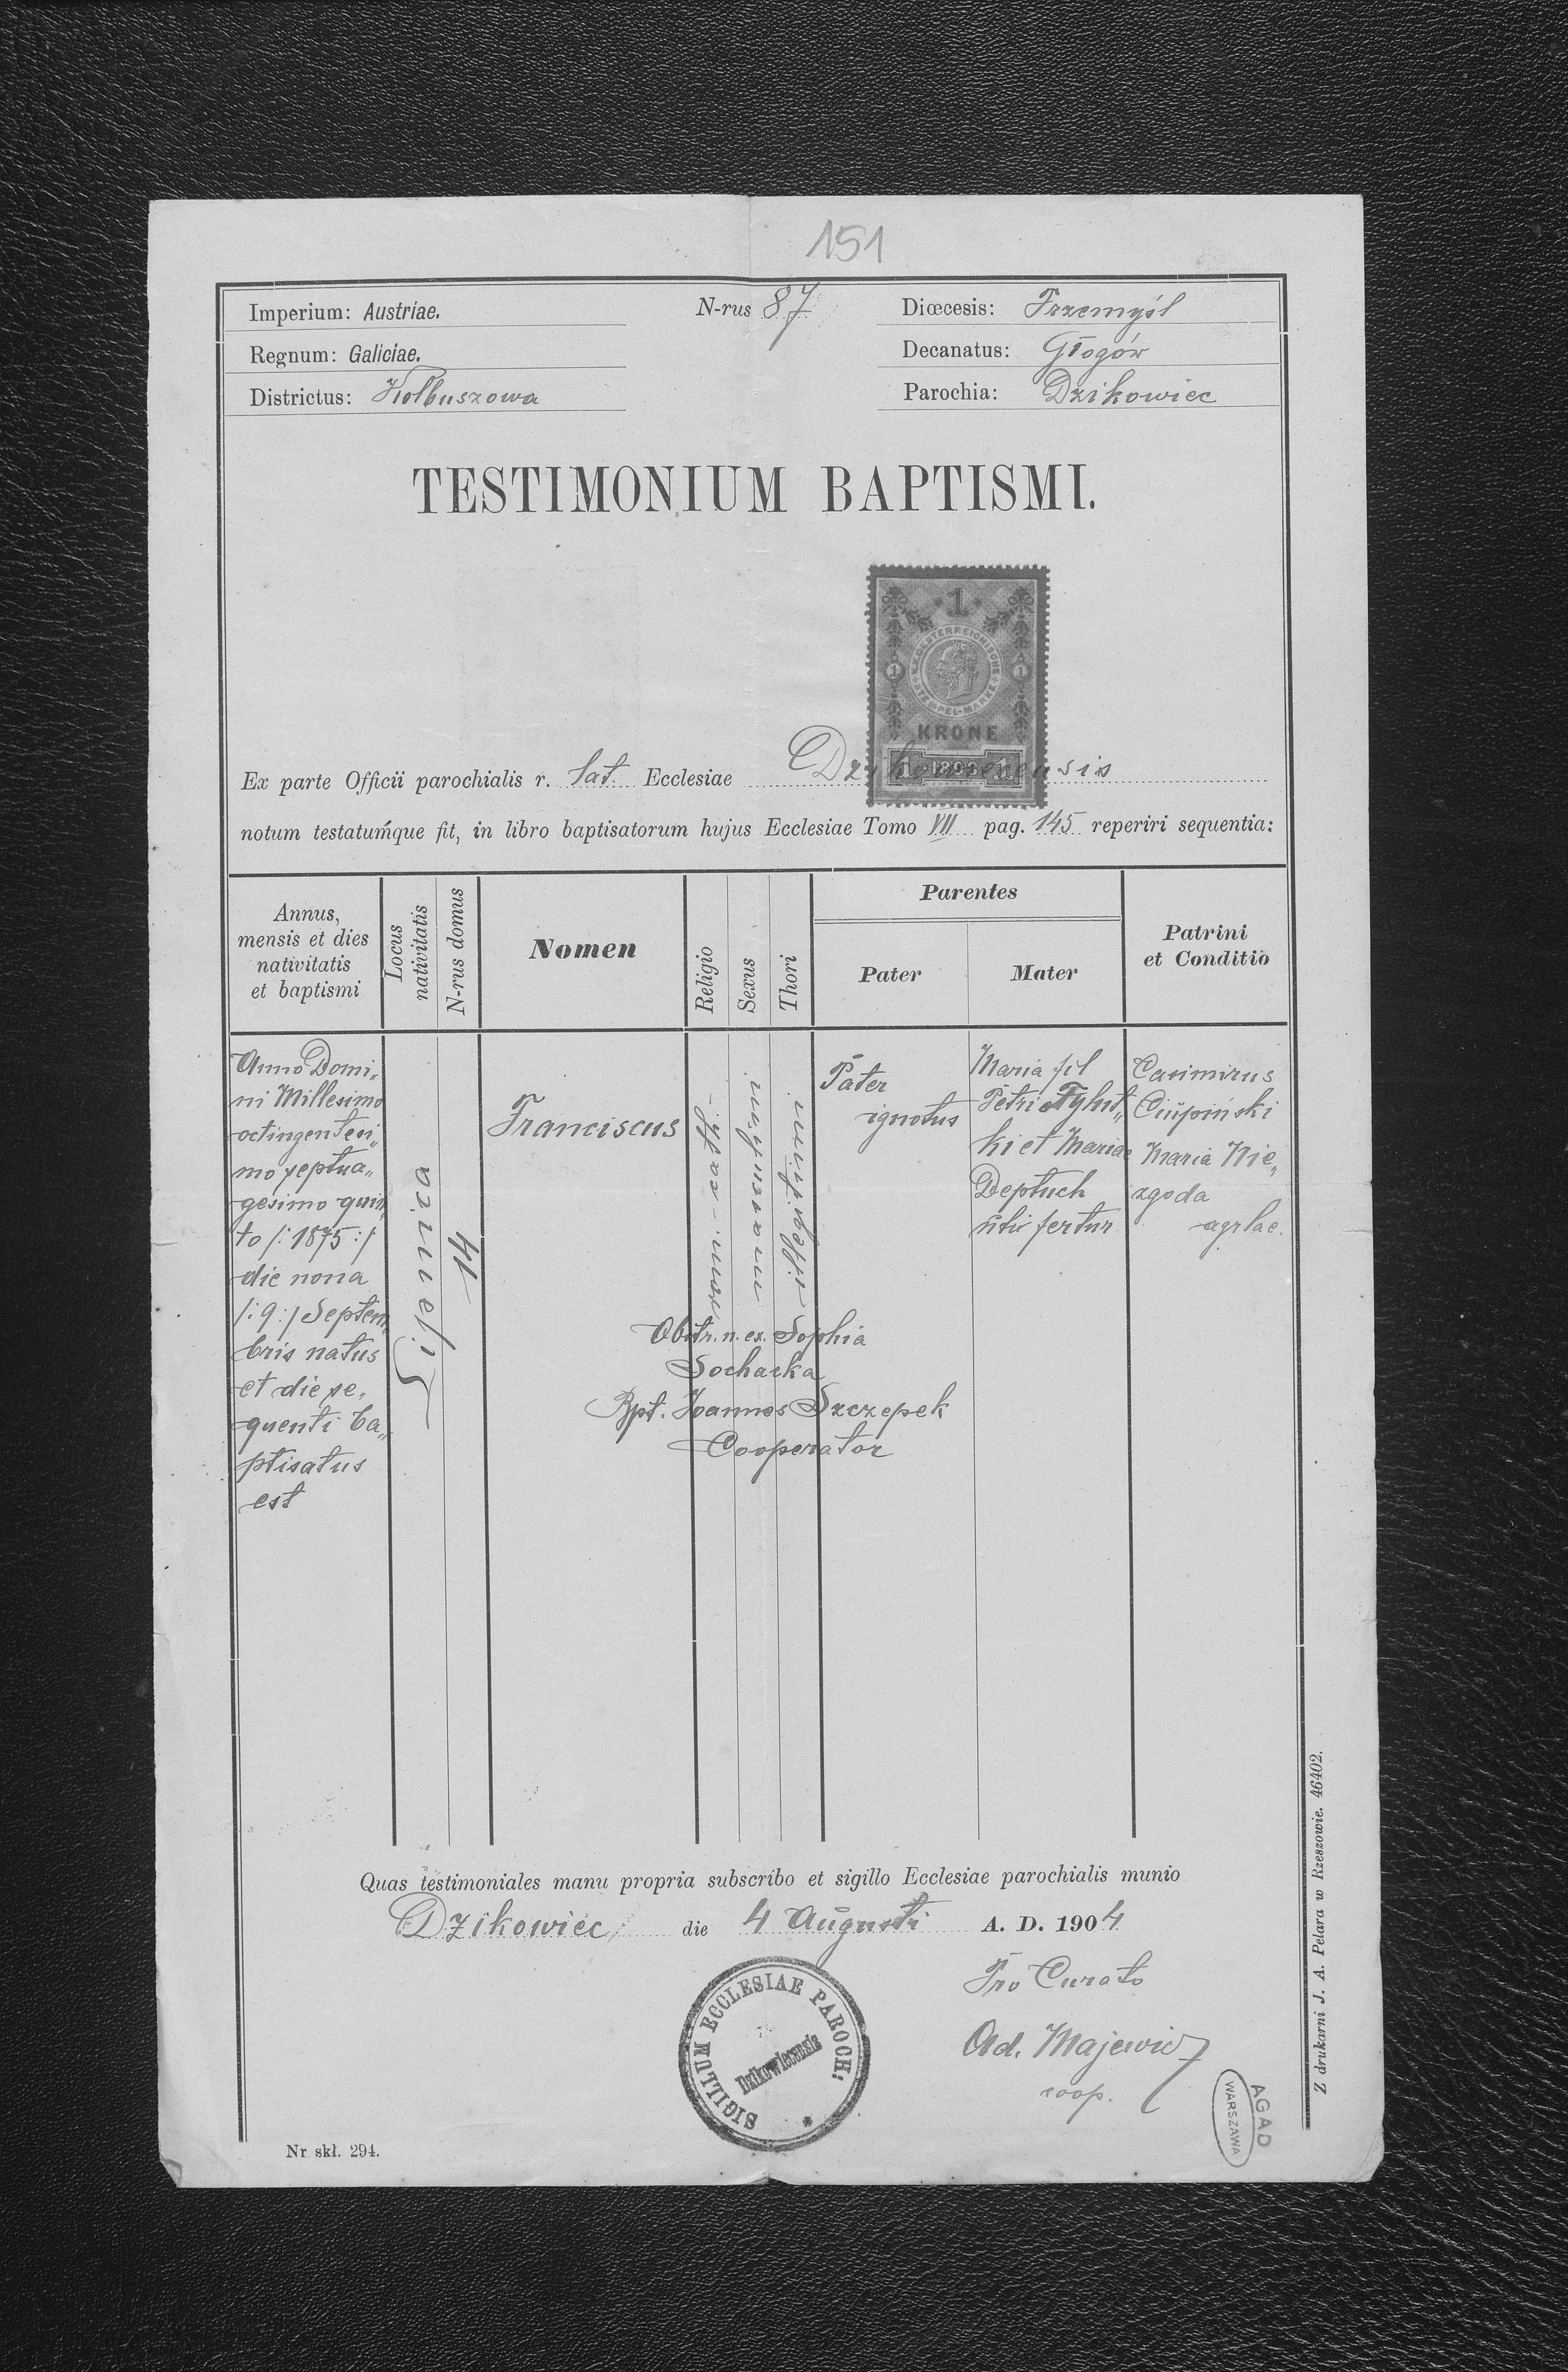 151
Imperium: Austriae.
N-rus 87
Diœcesis: Przemyśl
Regnum: Galiciae.
Decanatus: Głogów
Districtus: Kolbuszowa
Parochia: Dzikowiec
TESTIMONIUM BAPTISMI.
1
K.K. OESTERREICHISCHE STEMPEL-MARKE
1 1
KRONE
1 1898 1
Ex parte Officii parochialis r. lat. Ecclesiae Dzikoviecensis
notum testatumque fit, in libro baptisatorum hujus Ecclesiae Tomo VII pag. 145 reperiri sequentia:
Annus,
mensis et dies
nativitatis
et baptismi
Locus
nativitatis
N-rus domus
Nomen
Religio
Sexus
Thori
Parentes
Pater
Mater
Patrini
et Conditio
Anno Domi„
ni Millesimo
octingentesi„
mo septua„
gesimo quin„
to /: 1875 :/
die nona
/: 9 :/ Septem„
bris natus
et die se„
quenti ba„
ptisatus
est
14
Franciscus
rom. - cath. -
masculinus
illegitimi
Pater
ignotus
Maria fil
Petri
ki et Mariae
Deptuch
uti fertur
Casimirus
Ciupiński
Maria Nie„
zgoda
agrlae.
Obstr. n. ex. Sophia
Sochacka
Bpt. Joannes Szczepek
Cooperator
Quas testimoniales manu propria subscribo et sigillo Ecclesiae parochialis munio
Dzikowiec, die 4 Augusti A. D. 1904
Pro Curato
Ad. Majewicz
coop.
SIGILLUM ECCLESIAE PAROCH:
Dzikowiecensis
AGAD
WARSZAWA
Nr skł. 294.
Z drukarni J. A. Pelara w Rzeszowie. 46402.